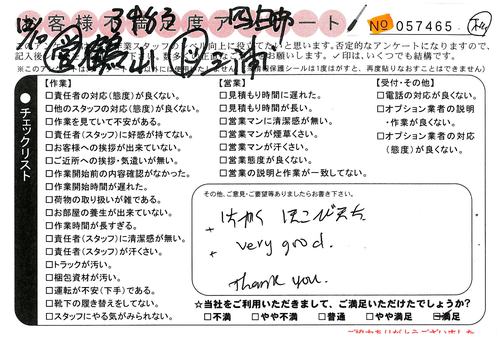 お客様不満足度アンケート
No 057465
このアンケートは
業スタッフのレベル向上に役立てたいと思います。否定的なアンケートになりますので、
記入後
✓印は、いくつでも結構です。
※このアンケートは
保護シールは1度がすと、再度貼りなおすことはできません)
●チェックリスト
【作業】
□責任者の対応(態度)が良くない。
□他のスタッフの対応(態度)が良くない。
□作業を見ていて不安がある。
□責任者(スタッフ)に好感が持てない。
□お客様への挨拶が出来ていない。
□ご近所への挨拶・気遣いが無い。
□作業開始前の内容確認がなかった。
□作業開始時間が遅れた。
□荷物の取り扱いが雑である。
□お部屋の養生が出来ていない。
□作業時間が長すぎる。
□責任者(スタッフ)に清潔感が無い。
□責任者(スタッフ)が汗くさい。
□トラックが汚い。
□梱包資材が汚い。
□運転が不安(下手)である。
□靴下の履き替えをしてない。
□スタッフにやる気がみられない。
【営業】
□見積もり時間に遅れた。
□見積もり時間が長い。
□営業マンに清潔感が無い。
□営業マンが煙草くさい。
□営業マンが汗くさい。
□営業態度が良くない。
□営業の説明と作業が一致してない。
【受付・その他】
□電話の対応が良くない。
□オプション業者の説明
・作業が良くない。
□オプション業者の対応
(態度)が良くない。
その他、ご意見・ご要望等ありましたらお書き下さい。
very good.
Thank you.
☆当社をご利用いただきまして、ご満足いただけたでしょうか?
□不満 □やや不満 □普通 □やや満足 □満足
ご協力ありがとうございました